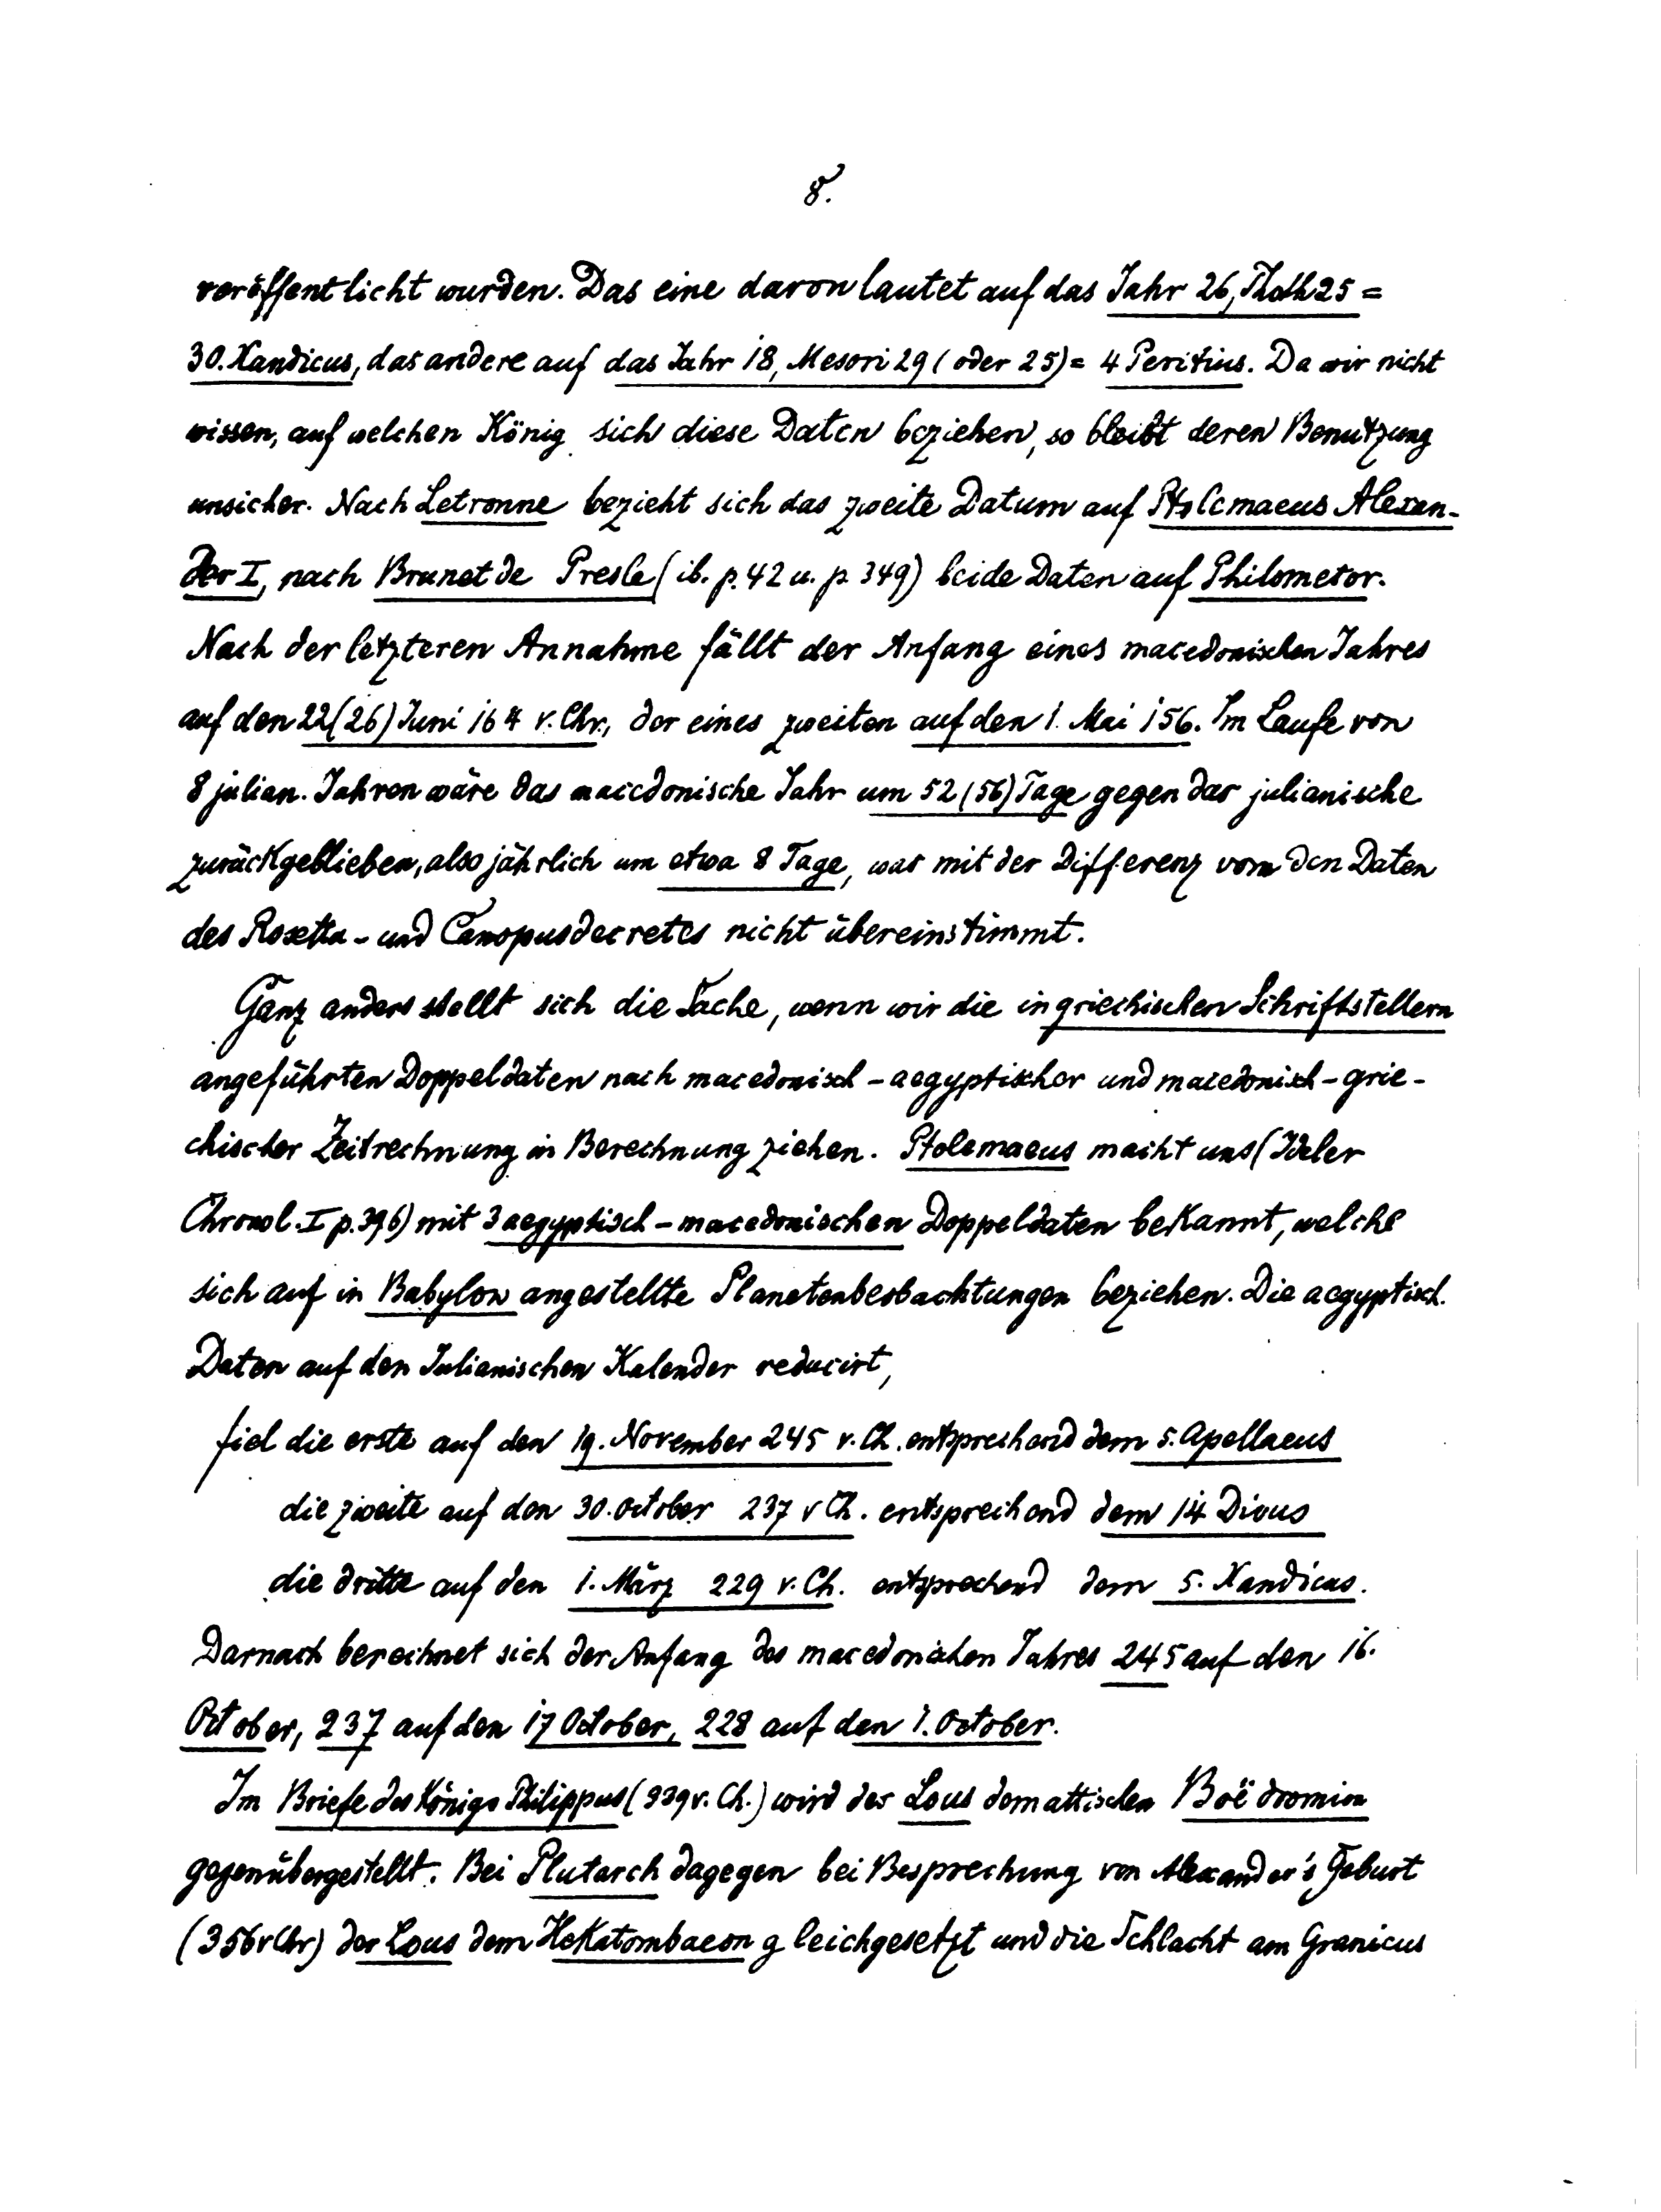 8.
veröffentlicht wurden. Das eine davon lautet auf das Jahr 26, Thoth 25 =
30. Xandicus, das andere auf das Jahr 18, Mesori 29 (oder 25) = 4 Peritius. Da wir nicht
wissen, auf welchen König sich diese Daten beziehen, so bleibt deren Benutzung
unsicher. Nach Letronne bezieht sich das zweite Datum auf Ptolemaeus Alexan-
der I, nach Brunet de Presle (ib. p. 42 u. p. 349) beide Daten auf Philometor.
Nach der letzteren Annahme fällt der Anfang eines macedonischen Jahres
auf den 22 (26) Juni 164 v. Chr., der eines zweiten auf den 1. Mai 156. Im Laufe von
8 julian. Jahren wäre das macedonische Jahr um 52 (56) Tage gegen das julianische
zurückgeblieben, also jährlich um etwa 8 Tage, was mit der Differenz von den Daten
des Rosetta- und Canopusdecretes nicht übereinstimmt.
Ganz anders stellt sich die Sache, wenn wir die in griechischen Schriftstellern
angeführten Doppeldaten nach macedonisch-aegyptischer und macedonisch-grie-
chischer Zeitrechnung in Berechnung ziehen. Ptolemaeus macht uns (Ideler
Chronol. I p. 396) mit 3 aegyptisch-macedonischen Doppeldaten bekannt, welche
sich auf in Babylon angestellte Planetenbeobachtungen beziehen. Die aegyptisch.
Daten auf den Julianischen Kalender reducirt,
fiel die erste auf den 19. November 245 v. Ch. entsprechend dem 5. Apellaeus
die zweite auf den 30. October 237 v Ch. entsprechend dem 14 Dious
die dritte auf den 1. März 229 v. Ch. entsprechend dem 5. Xandicus.
Darnach berechnet sich der Anfang des macedonischen Jahres 245 auf den 16.
October, 237 auf den 17 October, 228 auf den 1. October.
Im Briefe des Königs Philippus (339 v. Ch.) wird der Lous dem attischen Boëdromion
gegenübergestellt. Bei Plutarch dagegen bei Besprechung von Alexander's Geburt
(356 v Chr) der Lous dem Hekatombaeon gleichgesetzt und die Schlacht am Granicus